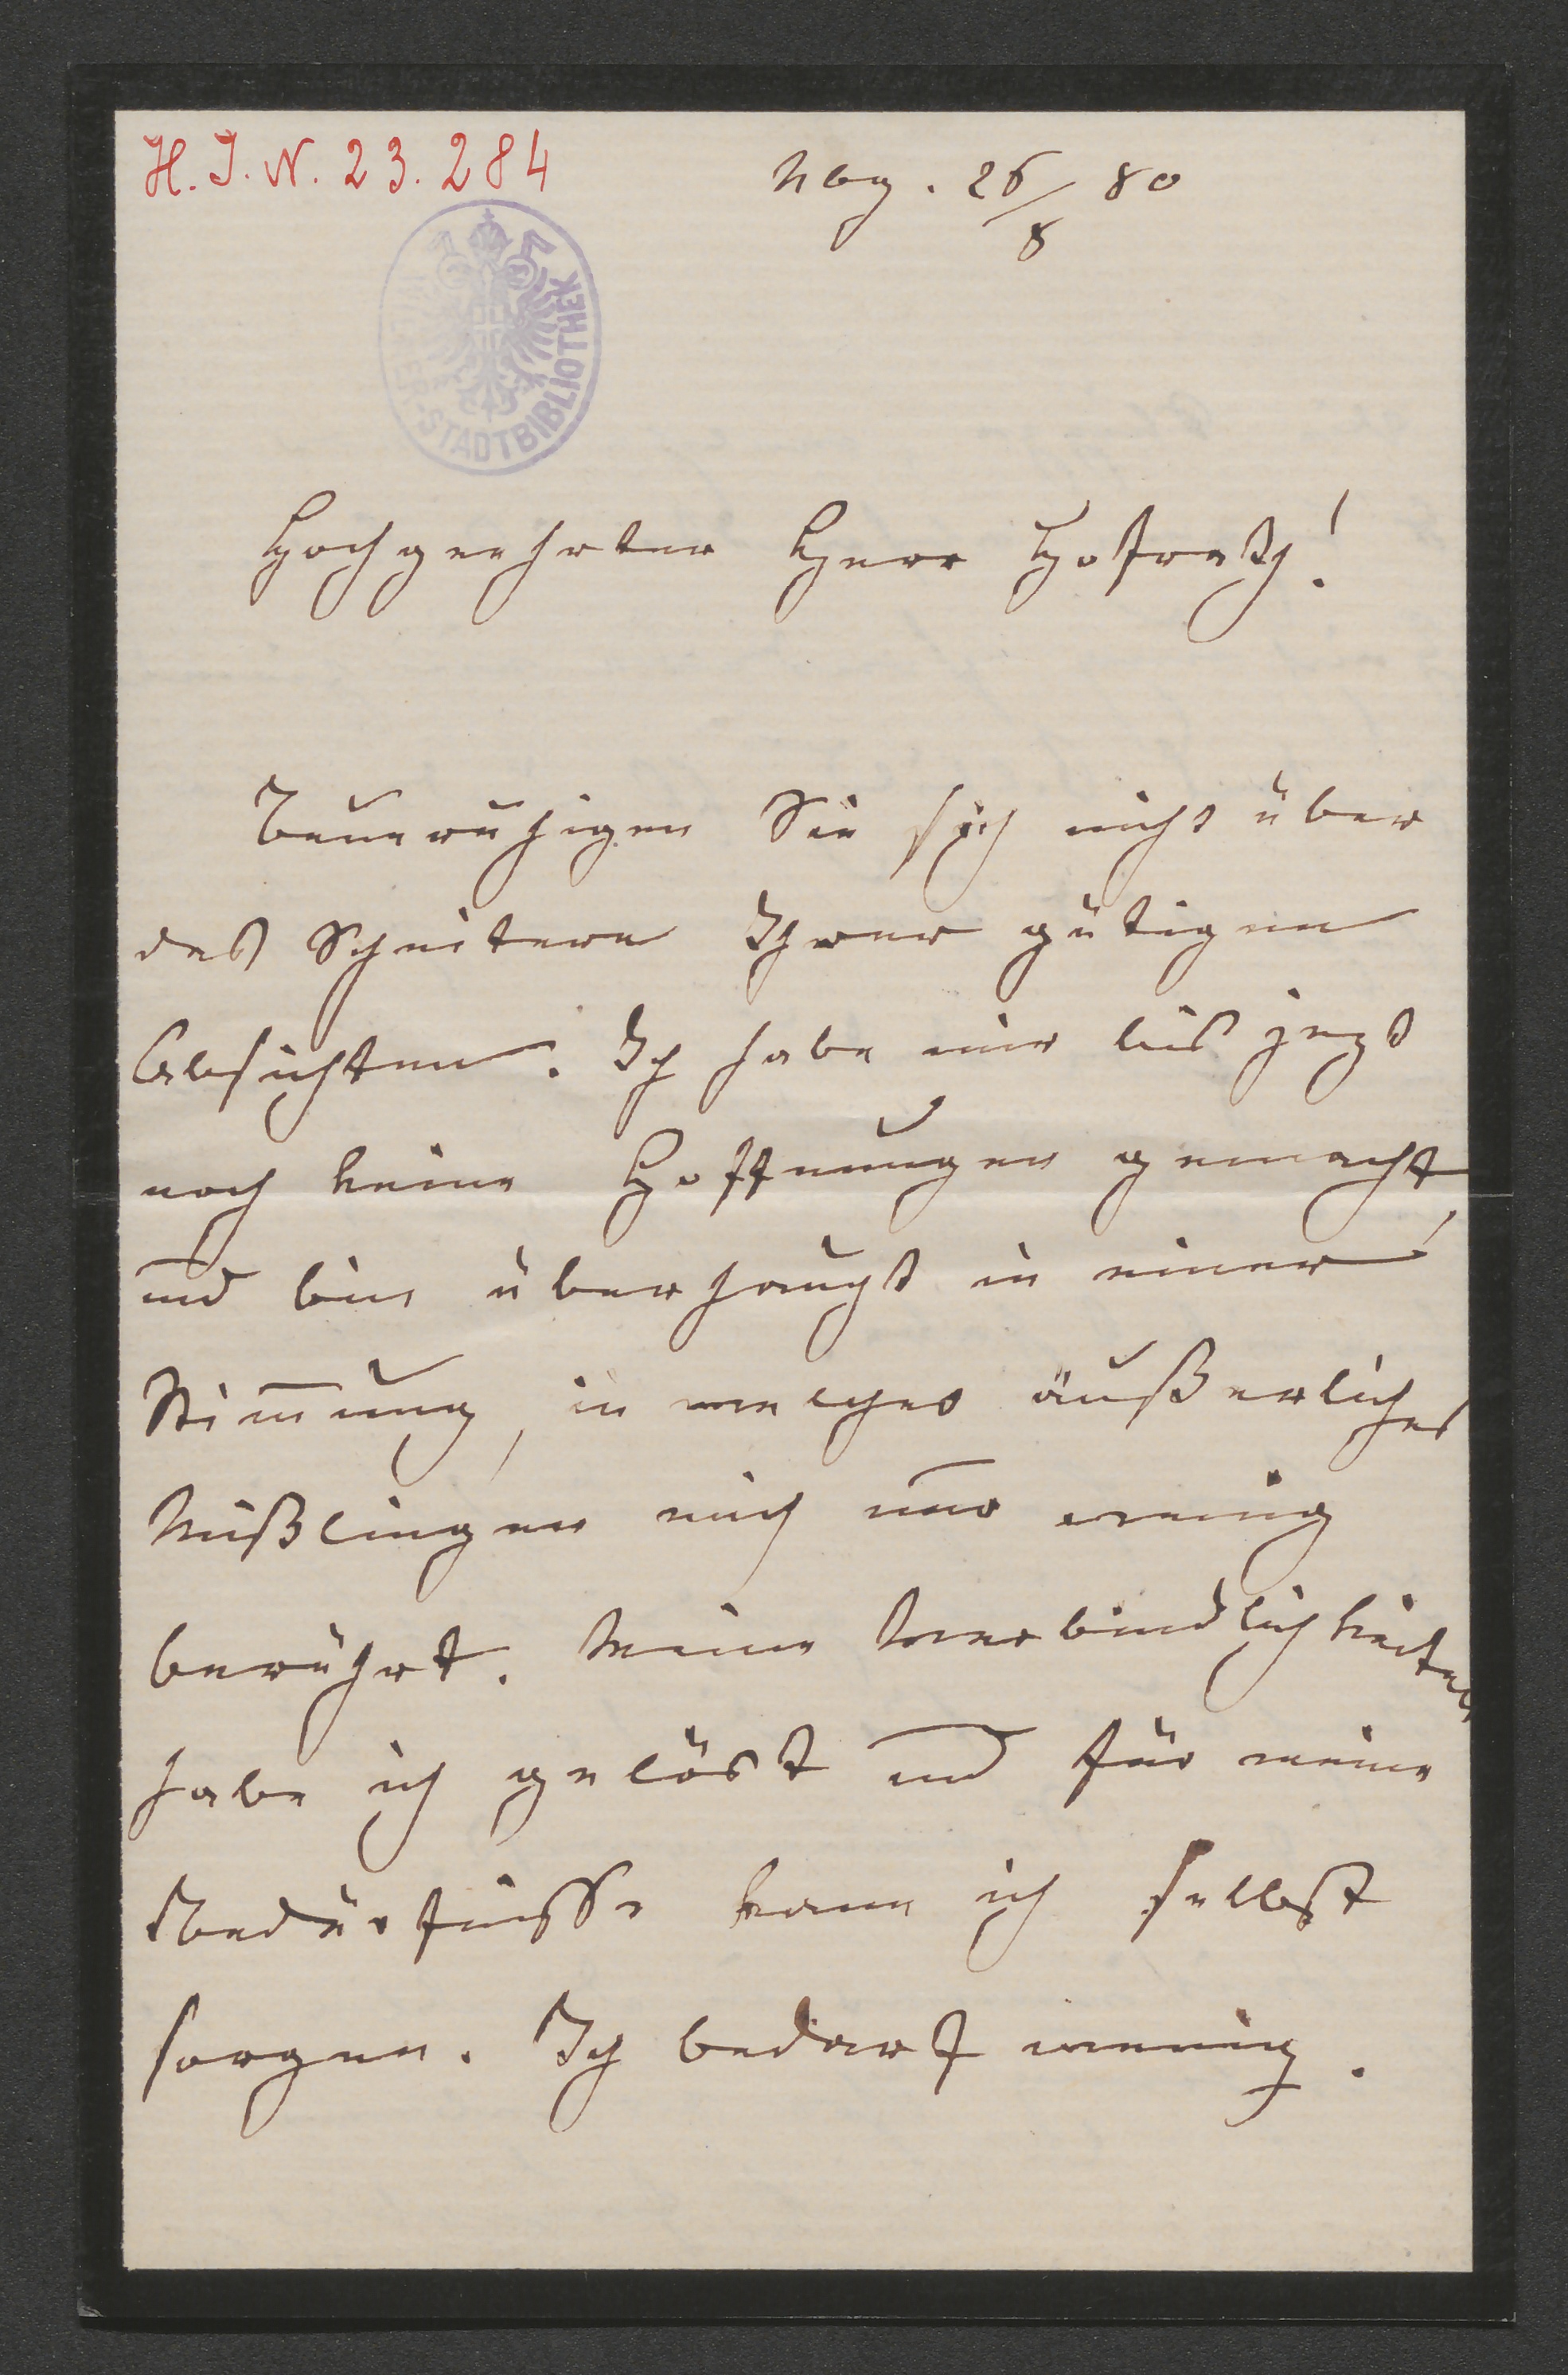 H. I. N. 23.284
Nbg. 26/8 80
STADTBIBLIOTHEK
Hochgeehrter Herr Hofrath!
Beunruhigen Sie sich nicht über
das Scheitern Ihrer gütigen
Absichten. Ich habe mir bis jezt
noch keine Hoffnungen gemacht
und bin überhaupt in einer
Stim̅ung, in welcher äußerliches
Mißlingen mich nur wenig
berührt. Meine Verbindlichkeiten
habe ich gelöst und für meine
Bedürfnisse kann ich selbst
sorgen. Ich bedarf wenig.